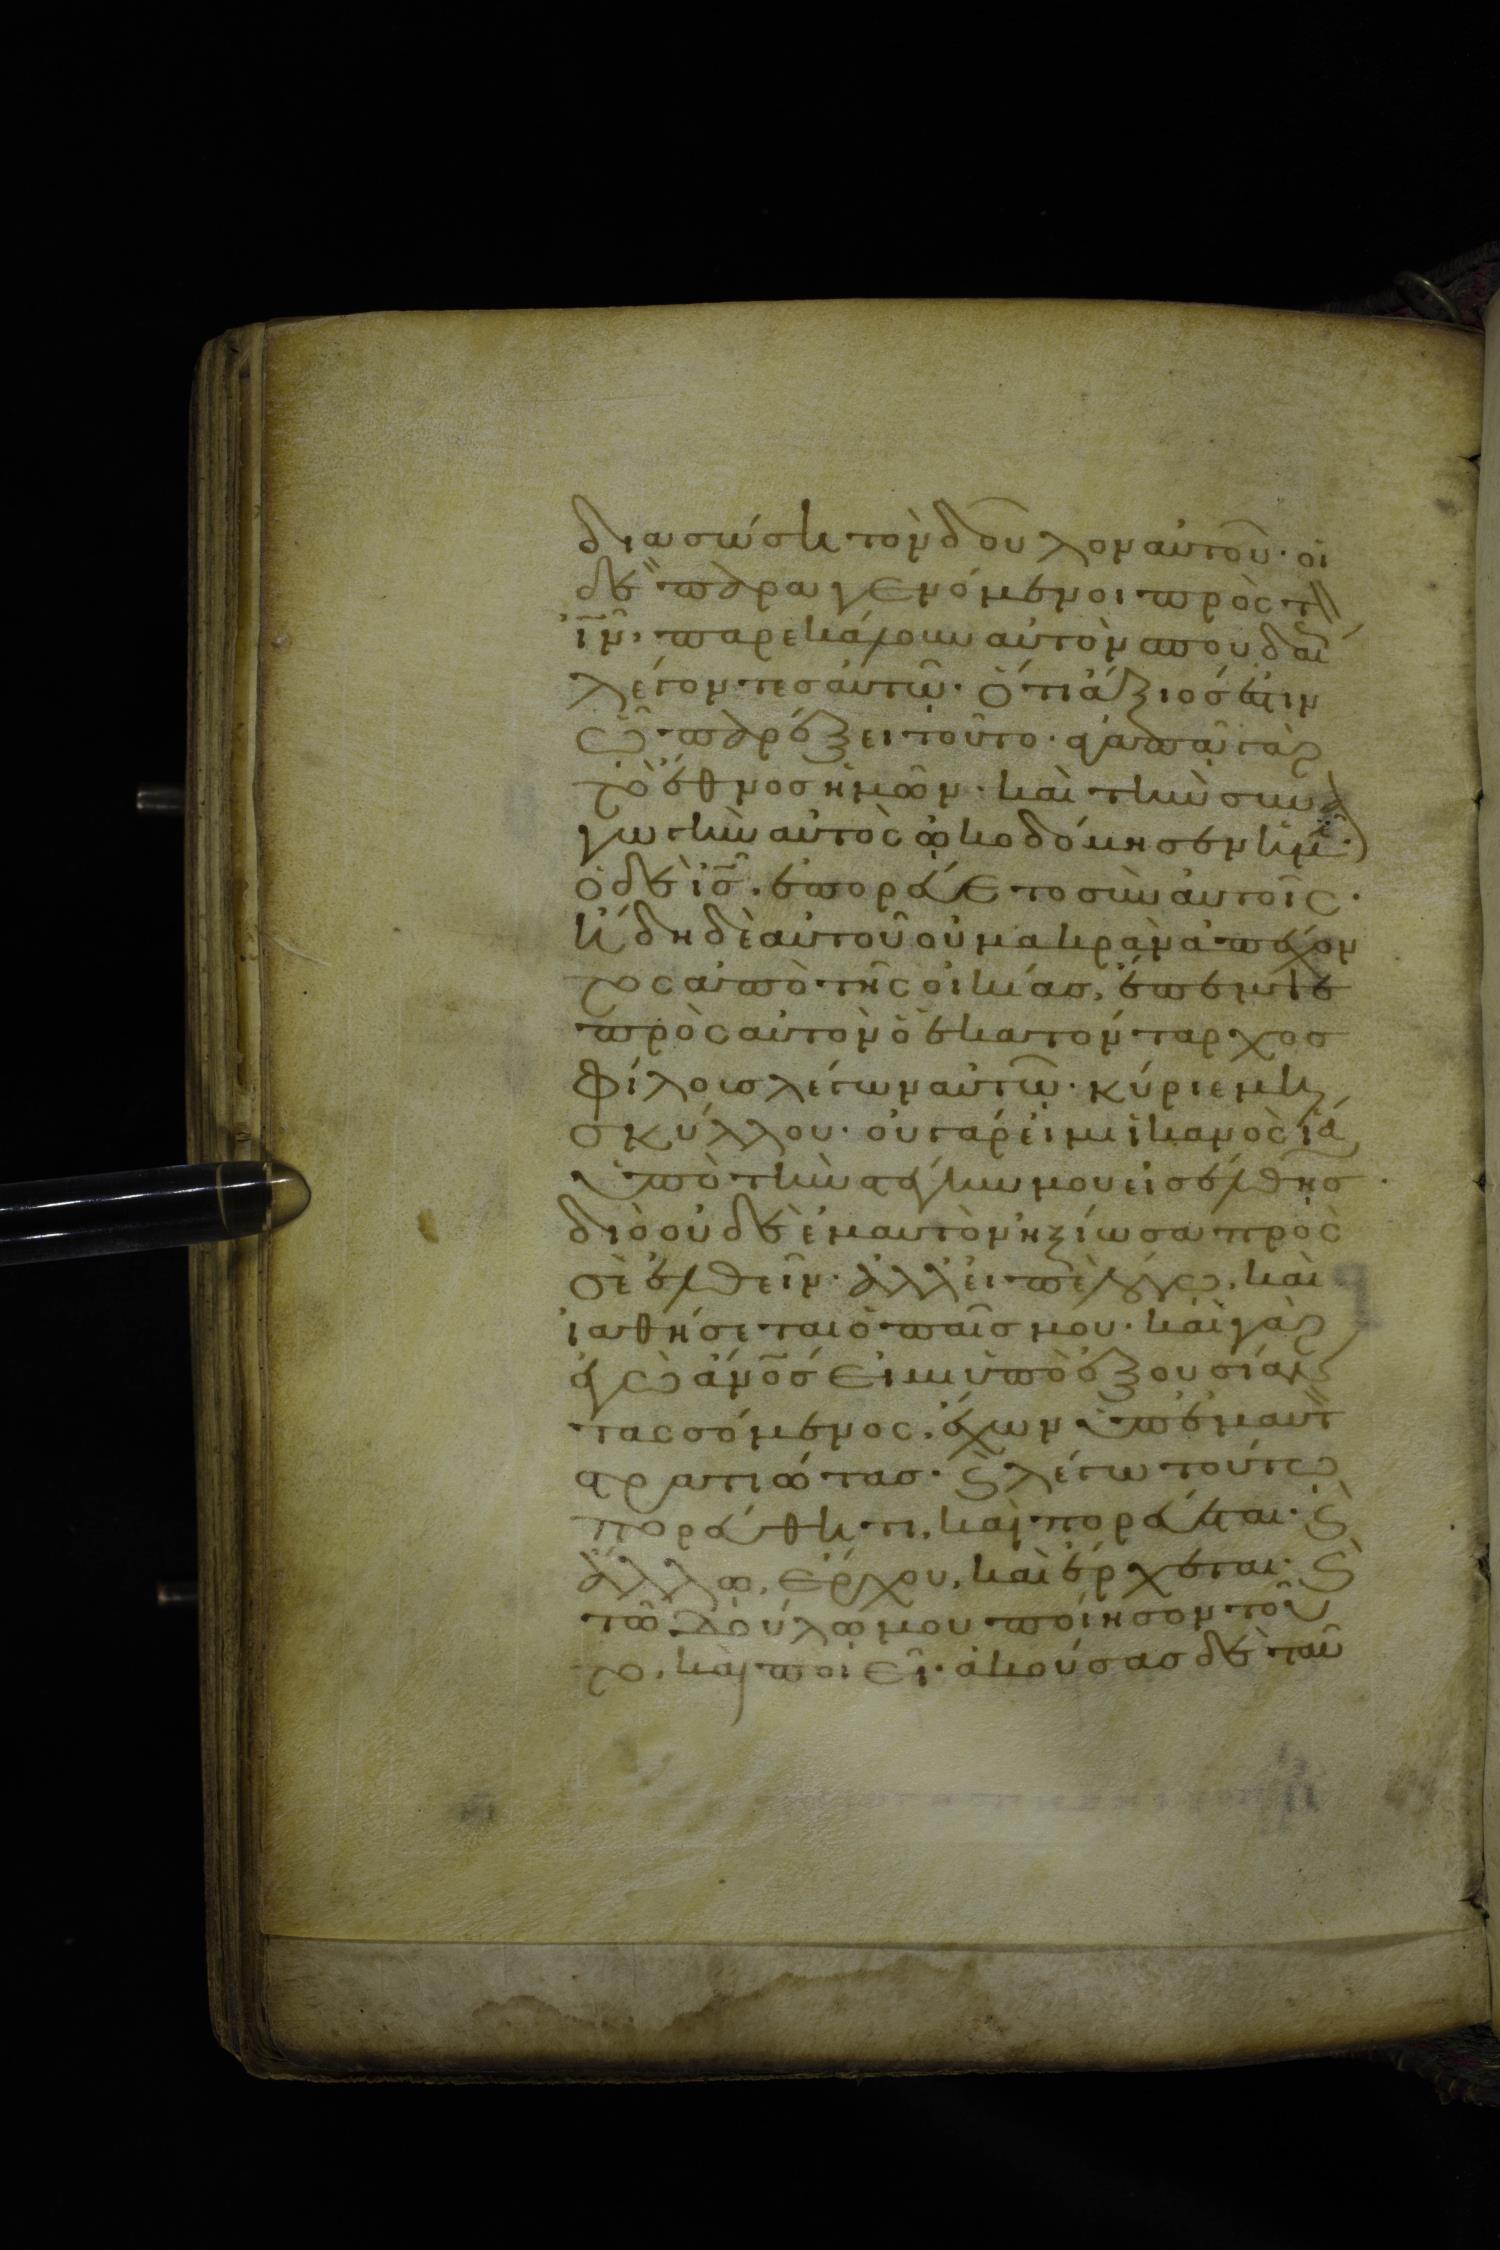 διασώση τὸν δοῦλον αὐτοῦ· οἱ
δὲ παραγενόμενοι πρὸς τ
ιν̅, παρεκάλουν αὐτὸν σπουδαί
λέγοντες αὐτῶ· ὅτι ἄξιός ἐστιν
ὧ παρέξει τοῦτο· ἀγαπᾶ γὰρ
τὸ ἔθνος ἡμῶν· καὶ τὴν συνα
γωγὴν αὐτὸς ὠκοδόμησεν ἡμῖ·
ὁ δὲ ισ̅. ἐπορεύετο σὺν αὐτοῖς·
ἤδη δὲ αὐτοῦ οὐ μακρὰν ἀπέχον
τος ἀπὸ τῆς οἰκίας, ἔπεμψε
πρὸς αὐτὸν ὁ ἑκατόνταρχος
φίλους λέγων αὐτῶ· κύριε μὴ
σκύλλου· οὐ γάρ εἰμι ἱκανὸς ἵνα
ὑπὸ τὴν στέγην μου εἰσέλθης·
διὸ οὐδὲ ἐμαυτὸν ἠξίωσα πρὸς
σὲ ἐλθεῖν· ἀλλ' εἰπὲ λόγω, καὶ
ἰαθήσεται ὁ παῖς μου· καὶ γὰρ
ἐγὼ ἄνο̅ς εἰμι ὑπὸ ἐξουσίαν
τασσόμενος, ἔχων ὑπ' ἐμαυτ
στρατιώτας· ϗ λέγω τούτω
πορεύθητι, καὶ πορεύεται· ϗ
ἄλλω, ἔρχου, καὶ ἔρχεται· ϗ
τῶ δούλω μου ποίησον τοῦ
το, καὶ ποιεῖ· ἀκούσας δὲ ταῦ